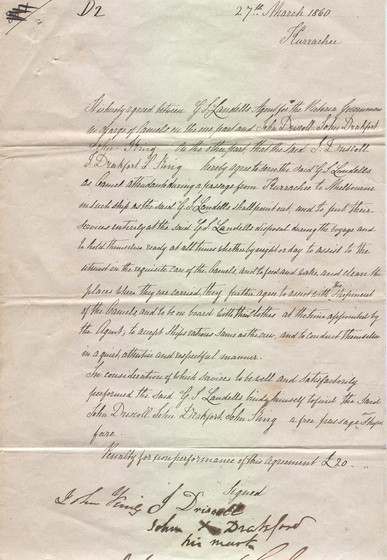 D2
27th March 1860
Kurrachee
It is hereby agreed between G S Landells Agent for the Victoria Government
in charge of Camels on the one part and John Driscoll John Drakford
John King on the other part that the said J Driscoll
J Drakford J King hereby agree to serve the said G S Landells
as Camel attendants during a passage from Kurrachee to Melbourne
in such ship as the said G S Landells shall point out and to put their
services entirely at the said G S Landells disposal during the voyage and
to hold themselves ready at all times whether by night or day to assist to the
utmost in the requisite care of the Camels, and to feed and water, and cleanse the
places where they are carried, they further agree to assist with the Shipment
of the Camels, and to be on board with their clothes at the time appointed by
the Agent; to accept Ships rations same as the crew, and to conduct themselves
in a quiet attentive and respectful manner.
In consideration of which services to be well and satisfactorily
performed the said G S Landells binds himself to find the said
John Driscoll John Drakford, John King a free passage Ships
fare.
Penalty for non performance of this Agreement £20.
Signed
John King J Driscoll
John X Drakford
his mark